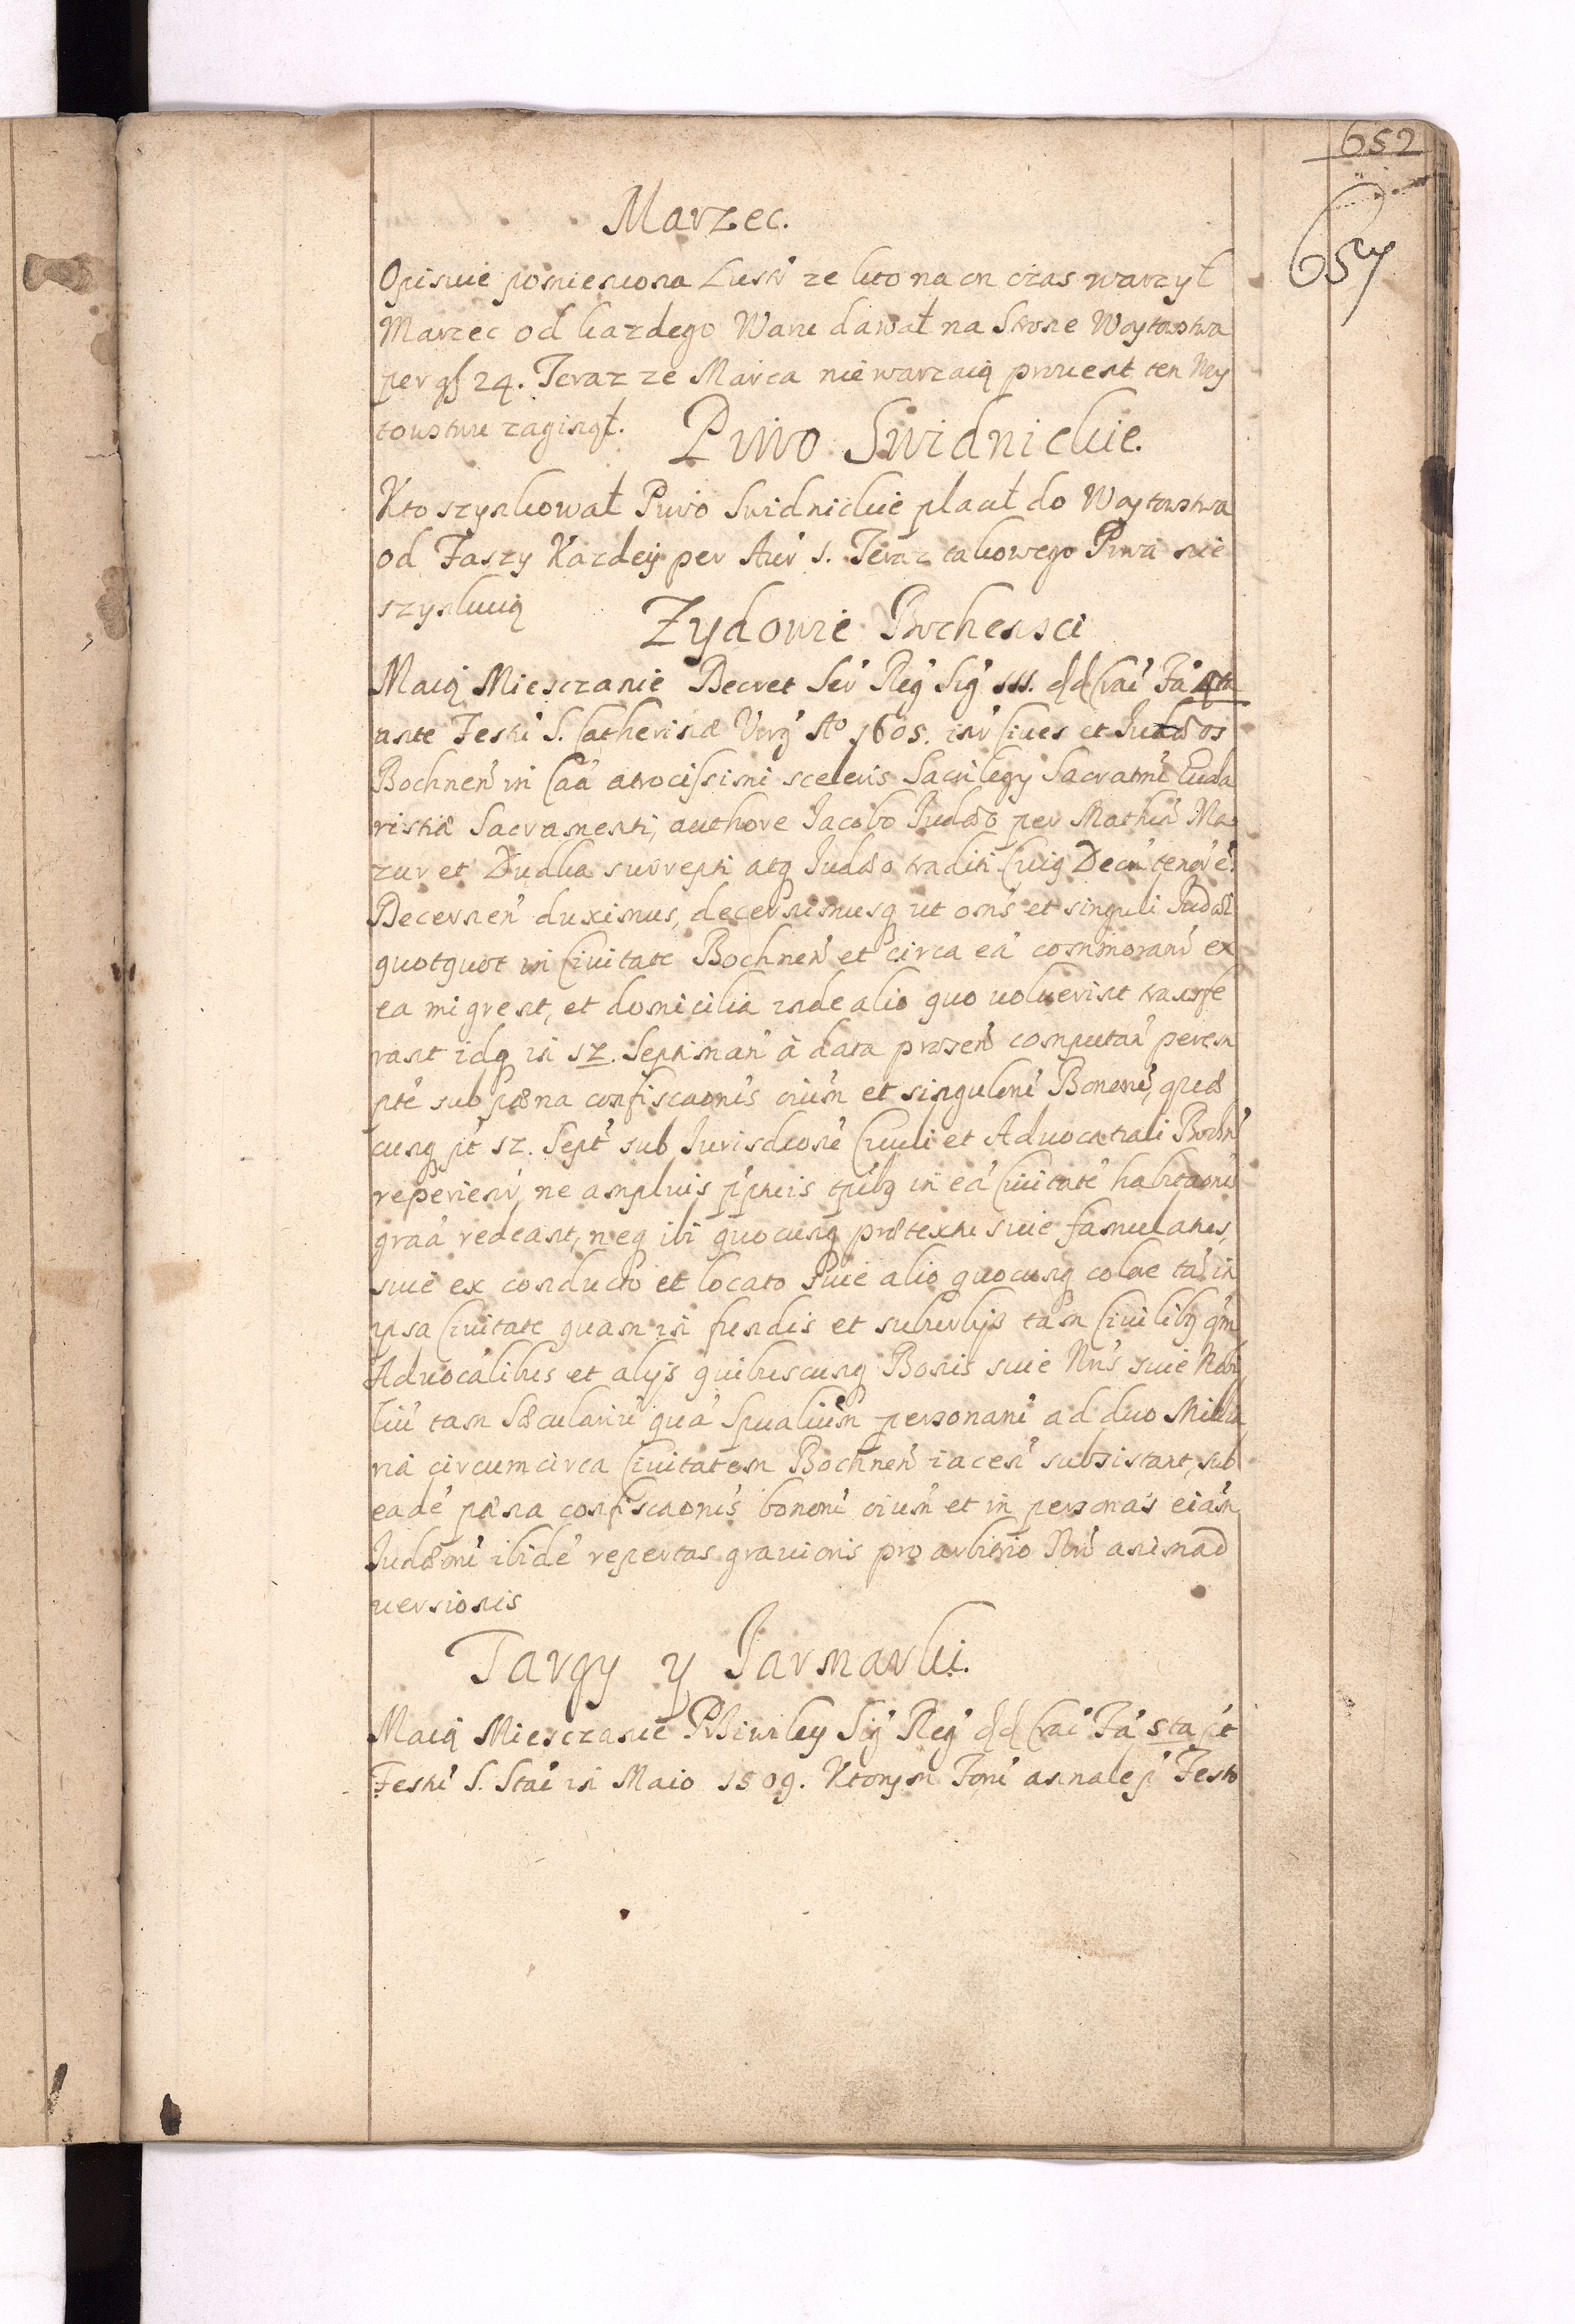 652
657
Marzec.
Opisuie pomieniona Lustr ze kto na on czas warzył
Marzec od kazdego Waru dawał na Strone Woytowstwa
per gs 24. Teraz ze Marca nie warzaią prouent ten Woy
towstwu zaginął.
Piwo Swidnickie.
Kto szynkował Piwo Swidnickie płacił do Woytowstwa
od Faszy Kazdey per Aur 1. Teraz takowego Piwa nie
szynkuią
Zydowie Bochensci
Maią Miesczanie Decret Ser Reg Sig III. dd Crac Fa 4ta
ante Festi S. Catherinæ Virg Ao 1605. intr Ciues et Iudæos
Bochnen in Caa atrocissimi sceleris Sacrilegy Sacratmi Eucha
ristiæ Sacramenti, authore Iacobo Iudæo per Mathia Ma
zur et Dudka surrepti atq Iudæo traditi Cuiq Decri tenor e.
Decernen duximus, decernimusq ut oms et singuli Iudæi
quotquot in Ciuitate Bochnen et circa ea commorant ex
ea migrent, et domicilia inde alio quo voluerint transfe
rant idq in 12. Septiman à data præsen computan perem
pte sub pæna confiscaonis oium et singulorum Bonorum, quæ
cunq pt 12. Sept sub Iurisdione Ciuili et Aduocatiali Bochn
reperient, ne amplius pptuis tpibq in ea Ciuitate habitaonis
graa redeant, neq ibi quocunq prætextu siue famulatus,
siue ex conducto et locato siue alio quocunq colore ta in
ipsa Ciuitate quam in fundis et suburbijs tam Ciuilibq qm
Aduocalibus et alijs quibuscunq Bonis siue Nris siue Nobi
liu tam Sæculariu qua Spualium personarum ad duo Millia
ria circumcirca Ciuitatem Bochnen iacen subsistant, sub
eade pæna confiscaonis bonorum oium et in personas eiam
Iudæorum ibide repertas grauioris pro arbitrio Nro animad
uersionis
Targy y Iarmarki.
Maią Miesczanie Priwiley Sig Reg dd Crac Fa 5ta pt
Festi S. Stai in Maio 1509. Ktorym Fori annale p Festo